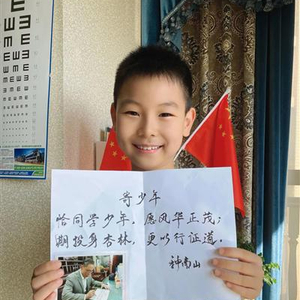 寄少年
恰同学少年,愿风华正茂;
期投身杏林,更以行证道。
钟南山